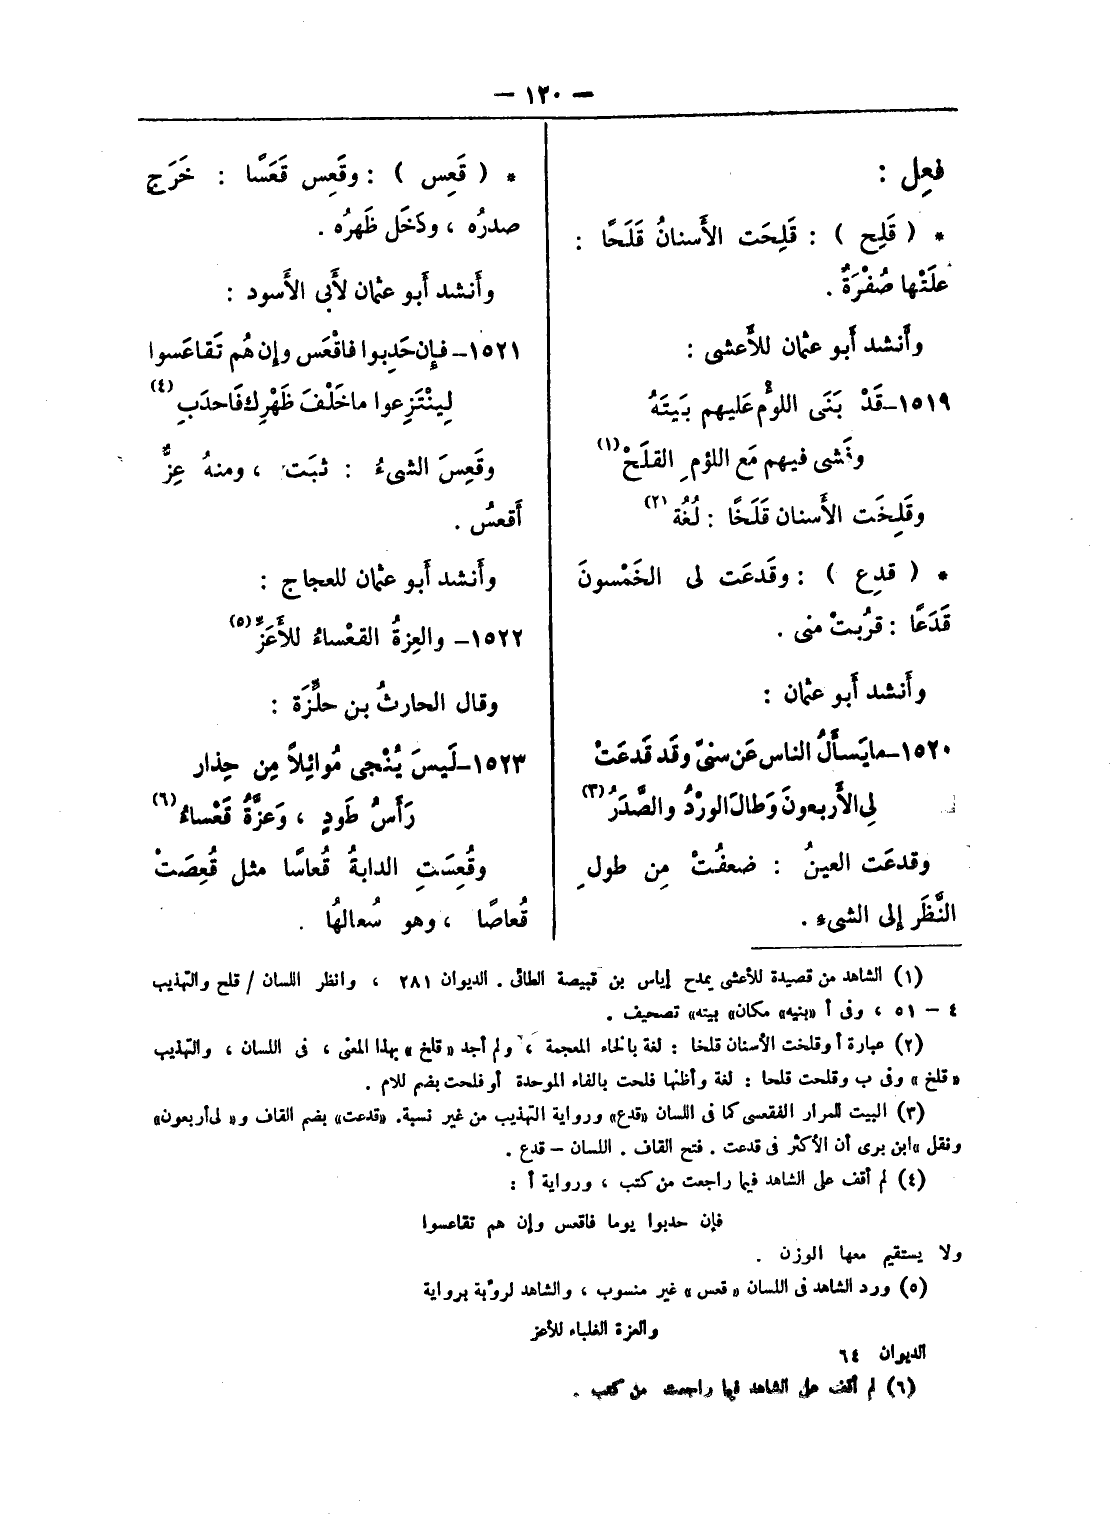 — ١٢٠ —
فعِل :
* ( قَلِح ) : قَلِحَت الأَسنانُ قَلَحًا :
علَتْها صُفْرَةٌ .
وأَنشد أَبو عثمان للأَعشى :
١٥١٩–قَدْ بَنَى اللوْمُ عَليهم بَيتَهُ
وفَشى فيهم مَع اللؤمِ القلَحْ (١)
وقَلِخَت الأَسنان قَلَخًا : لُغُة (٢)
* ( قدِع ) : وقَدعَت لى الخَمْسونَ
قَدَعًا : قرُبتْ منى .
وأَنشد أَبو عثمان :
١٥٢٠–مايَسأَلُ الناس عَن سنىِّ وقَد قَدعَتْ
لِى الأَربعونَ وَطالَ الورْدُ والصَّدَرُ (٣)
وقدعَت العينُ : ضعفُتْ مِن طولِ
النَّظَر إلى الشىءِ .
* ( قَعِس ) : وقَعِس قَعَسًا : خَرَج
صدرُه ، ودَخَل ظَهرُه .
وأَنشد أَبو عثمان لأَبى الأَسود :
١٥٢١–فإِن حَدِبوا فاقْعَس وإِن هُم تَقاعَسوا
لِينْتَزِعوا ماخَلْفَ ظَهْرِك فَاحدَبِ (٤)
وقَعِسَ الشىءُ : ثبَت ، ومنهُ عِزٌّ
أَقعسُ .
وأَنشد أَبو عثمان للعجاج :
١٥٢٢– والعِزةُ القعْساءُ للأَعَزِّ (٥)
وقال الحارثُ بن حلِّزَة :
١٥٢٣–لَيسَ يُنْجى مُوائِلاً مِن حِذار
رَأْسُ طَودٍ ، وَعزَّةٌ قَعْساءُ (٦)
وقُعِسَتِ الدابةُ قُعاسًا مثل قُعِصَتْ
قُعاصًا ، وهو سُعالهُا .
(١) الشاهد من قصيدة للأعشى يمدح إياس بن قبيصة الطائى . الديوان ٢٨١ ، وانظر اللسان / قلح والتهذيب
٤ – ٥١ ، وفى أ «بنيه» مكان» بيته» تصحيف .
(٢) عبارة أ وقلخت الأسنان قلخا : لغة بالخاء المعجمة ، ولم أجد «قلخ» بهذا المعنى ، فى اللسان ، والتهذيب
«قلخ» وفى ب وقلحت قلحا : لغة وأظنها فلحت بالفاء الموحدة أو قلحت بضم للام .
(٣) البيت للمرار الفقعسى كما فى اللسان «قدع» ورواية التهذيب من غير نسبة. «قدعت» بضم القاف و« لى أربعون»
ونقل «ابن برى أن الأكثر فى قدعت . فتح القاف . اللسان – قدع .
(٤) لم أقف على الشاهد فيما راجعت من كتب ، ورواية أ :
فإن حدبوا يوما فاقعس وإن هم تقاعسوا
ولا يستقيم معها الوزن .
(٥) ورد الشاهد فى اللسان «قعس» غير منسوب ، والشاهد لرؤبة برواية
والعزة الغلباء للأعز
الديوان ٦٤
(٦) لم أقف على الشاهد فيما راجعت من كتب .